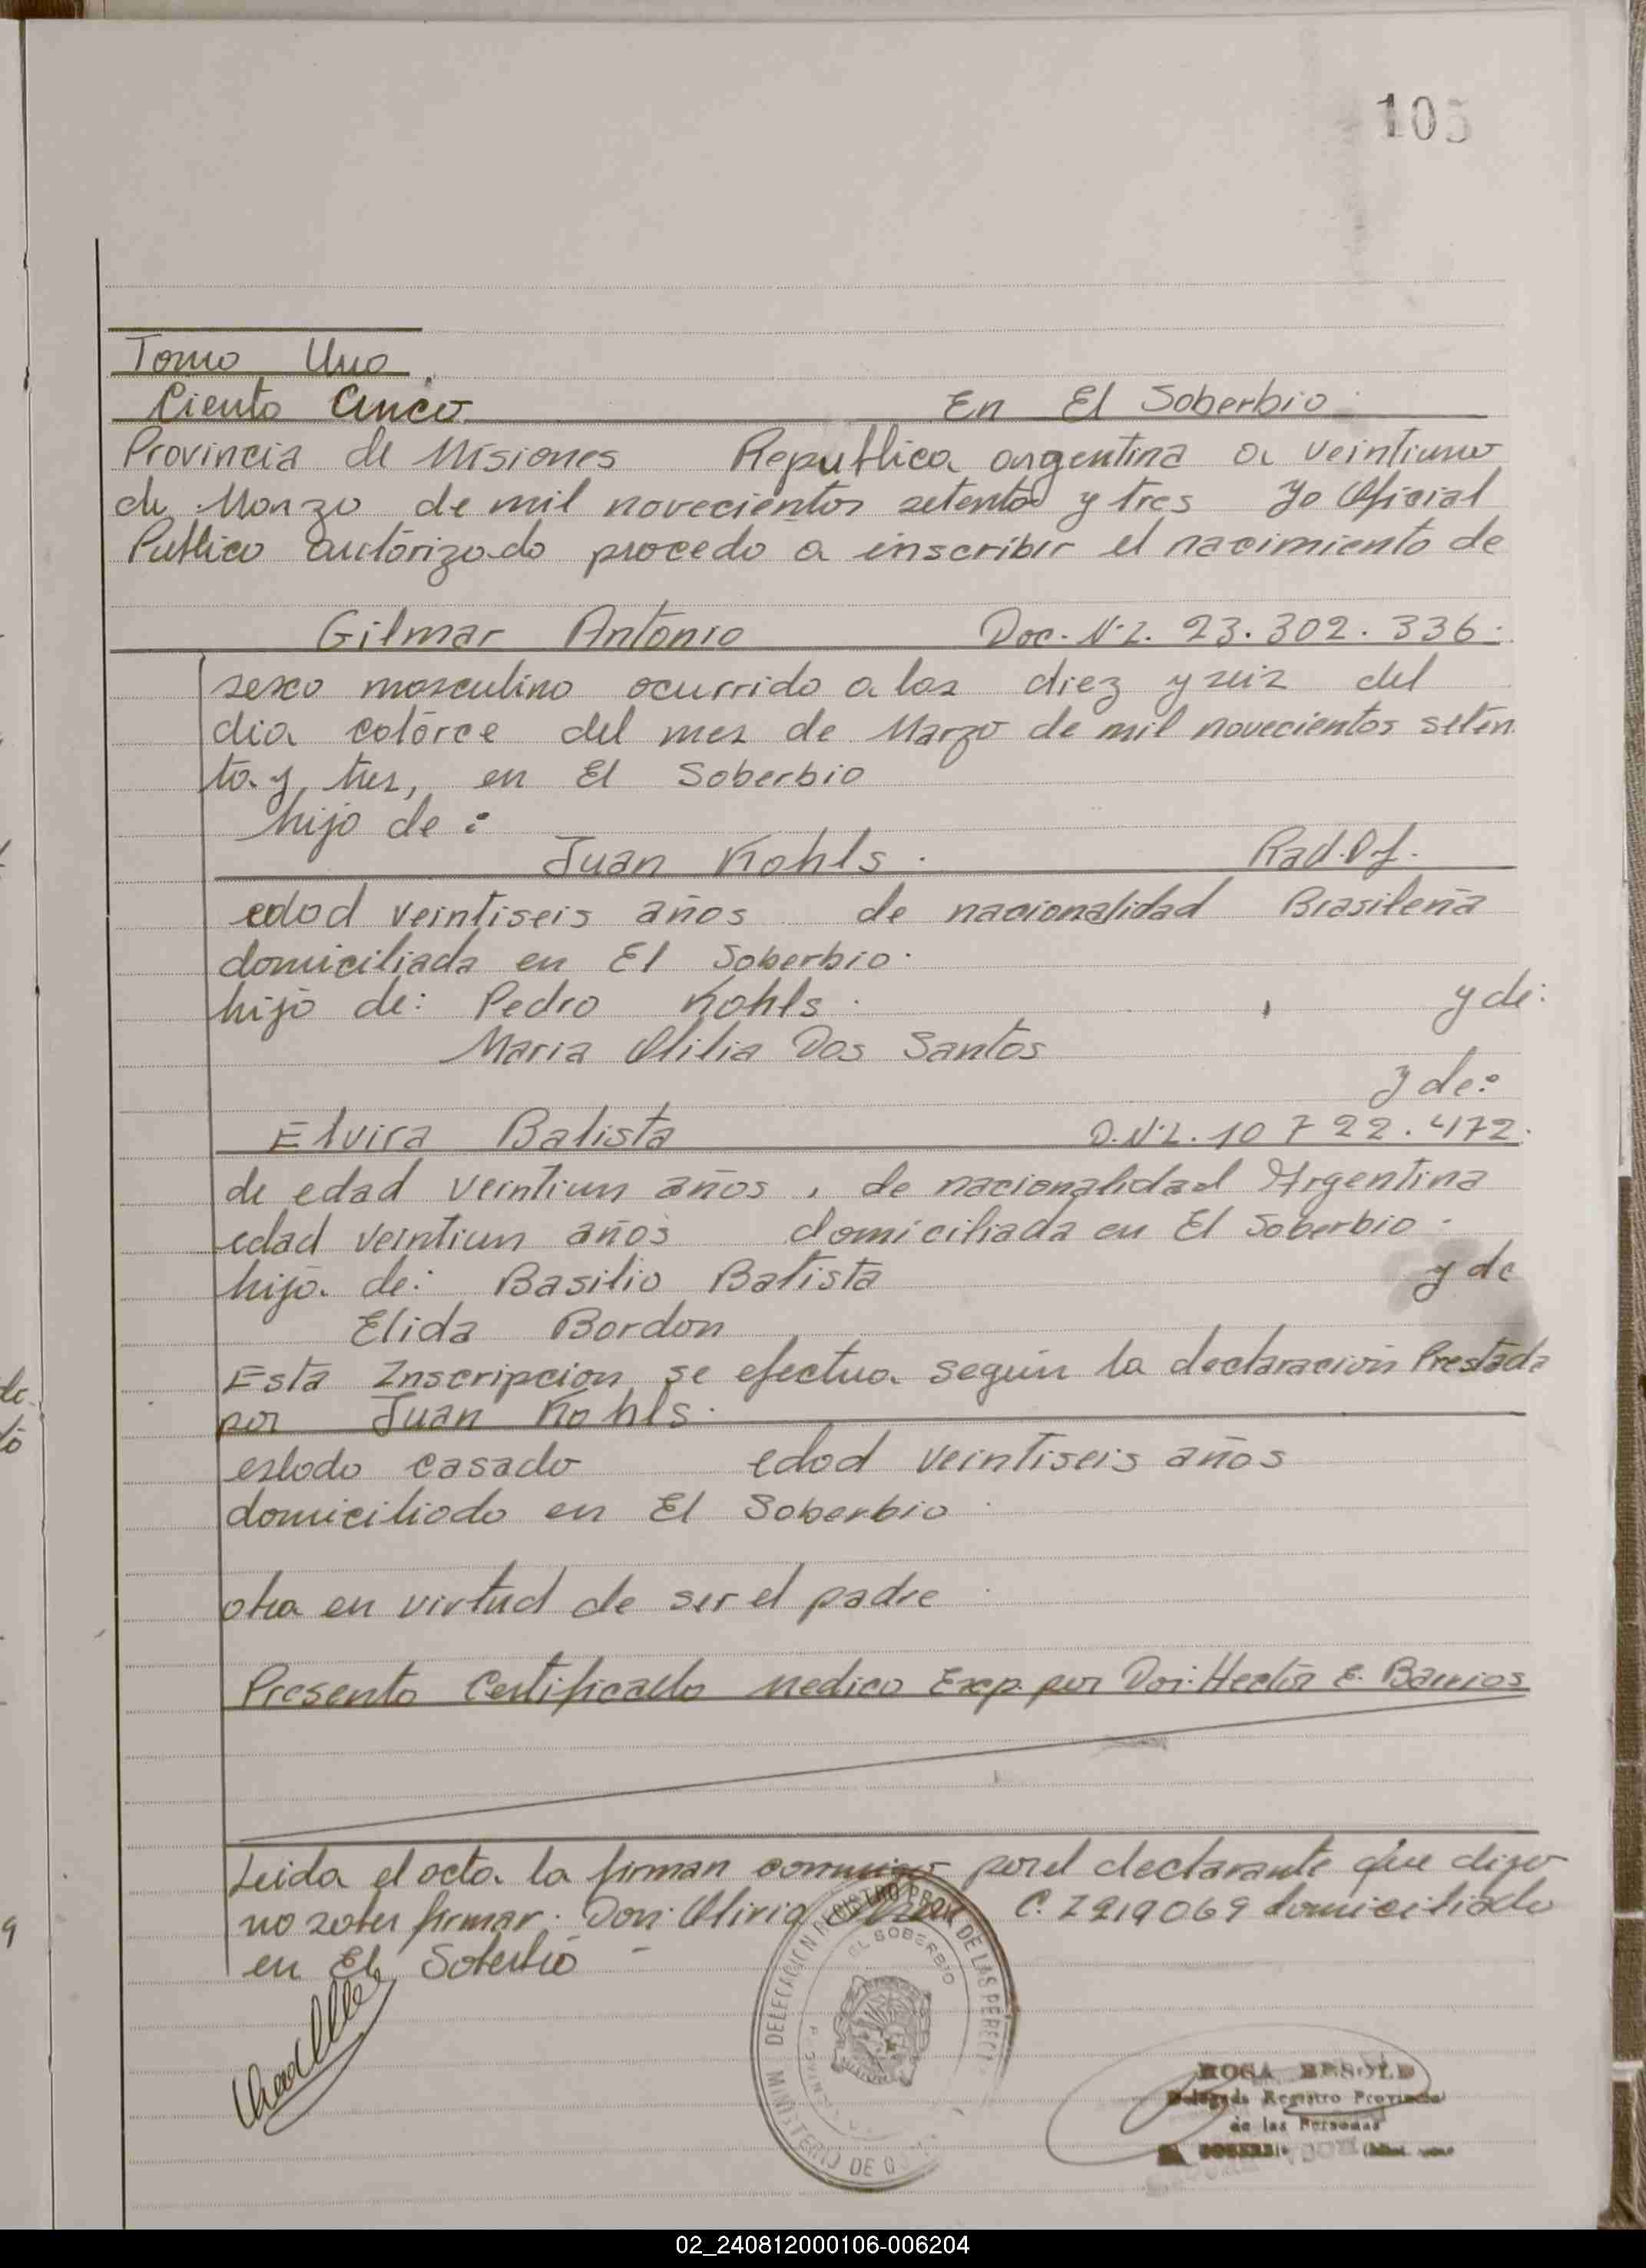 105
Tomo Uno
Ciento Cinco En El Soberbio
Provincia de Misiones Republica argentina a veintiuno
de Marzo de mil novecientos setenta y tres Yo Oficial
Publico autorizado procedo a inscribir el nacimiento de
Gilmar Antonio Doc. N.I. 23.302.336.
sexo masculino ocurrido a las diez y seis del
dia catorce del mes de Marzo de mil novecientos seten
ta y tres, en El Soberbio
hijo de:
Juan Kohls. Rad.Of.
edad veintiseis años de nacionalidad Brasileña
domiciliada en El Soberbio.
hijo de: Pedro Kohls. y de:
Maria Dos Santos
y de:
Elvira Batista D.N.I. 10 722.472.
de edad veintiun años, de nacionalidad Argentina
edad veintiun años domiciliada en El Soberbio.
hija de: Basilio Batista y de
Elida Bordon
Esta Inscripcion se efectua según la declaración Prestada
por Juan Kohls.
estado casado edad veintiseis años
domiciliado en El Soberbio.
obra en virtud de ser el padre.
Presento Certificado medico Exp. por Don: Hector E. Barrios
Leida el acta la firman conmigo por el declarante que dijo
no saber firmar. Don: C.I 219069 domiciliado
en El Soberbio -
MINISTERIO DE DELEGACION REGISTRO PROV. DE LAS PERS
EL SOBERBIO
ROSA
Delegada Registro Provincial
de las Personas
EL SOBERBIO
02_240812000106-006204